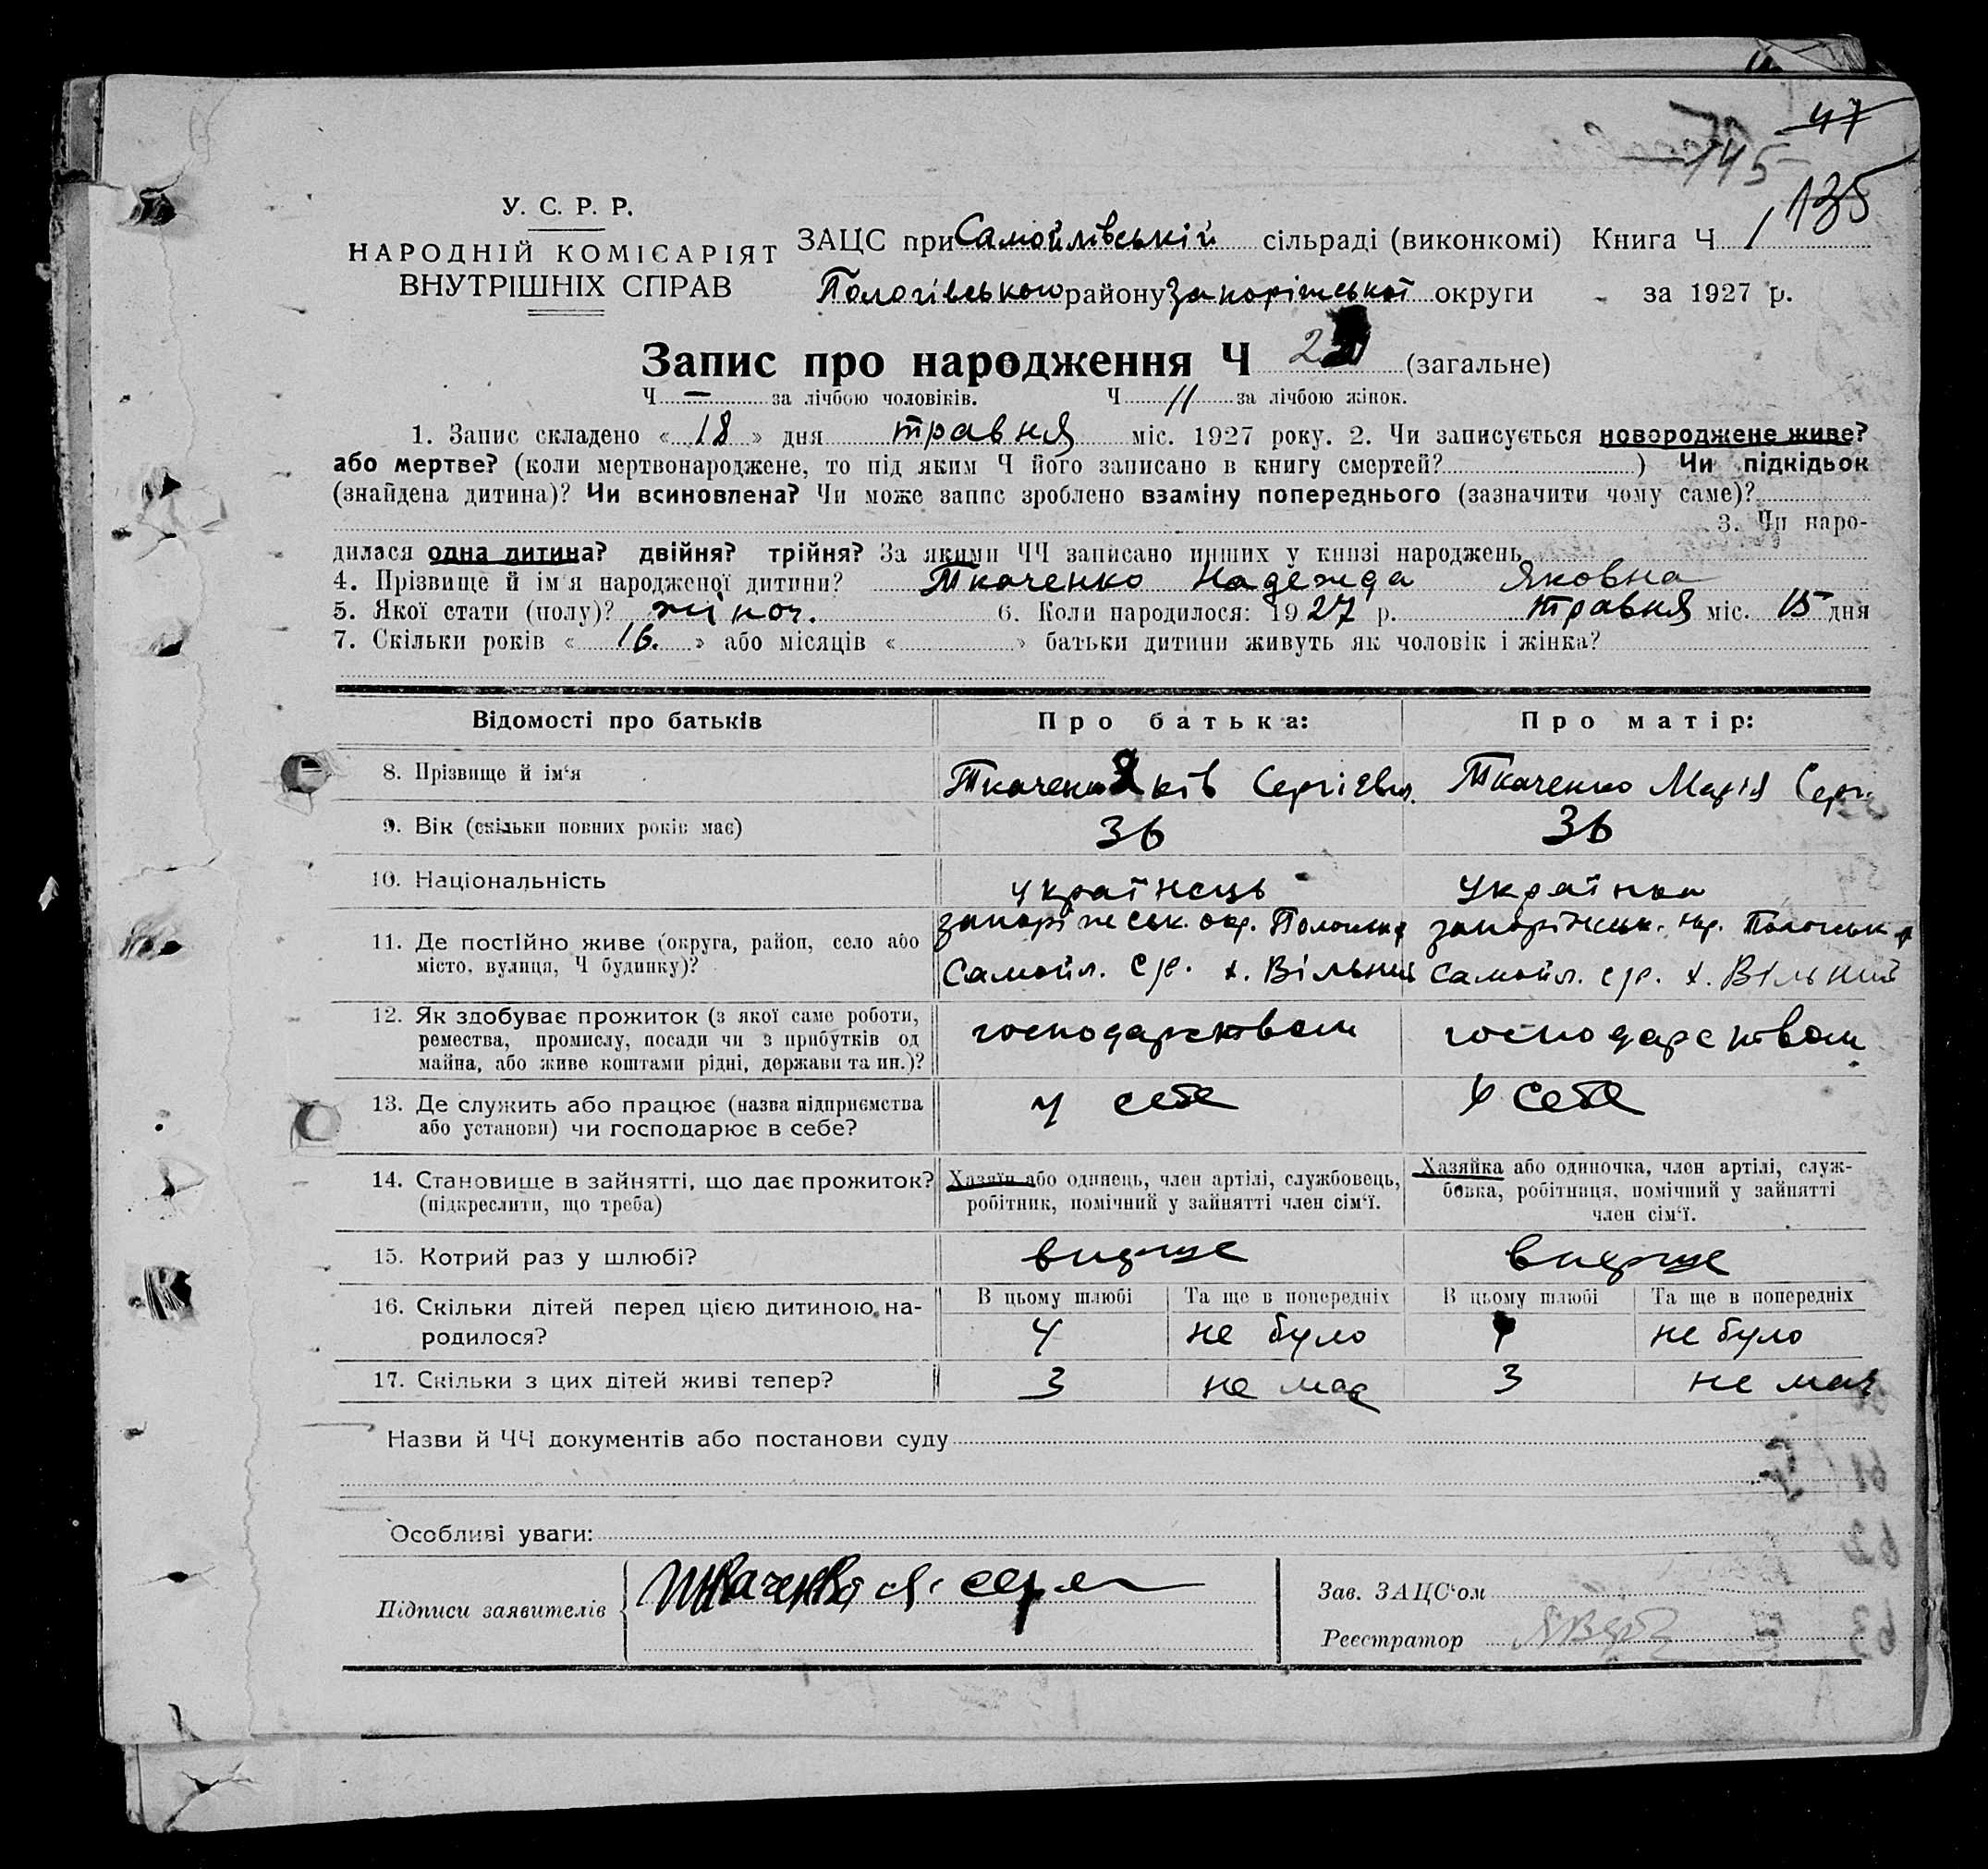 47
145
135
У. С. Р. Р.
НАРОДНІЙ КОМІСАРІЯТ
ВНУТРІШНІХ СПРАВ
ЗАЦС при Самойлівській сільраді (виконкомі) Книга Ч 1
Пологівського району Запоріжської округи за 1927 р.
Запис про народження Ч (загальне)
Ч — за лічбою чоловіків. Ч 11 за лічбою жінок.
1. Запис складено « 18 » дня травня міс. 1927 року. 2. Чи записується новороджене живе?
або мертве? (коли мертвонароджене, то під яким Ч його записано в книгу смертей? ) Чи підкідьок
(знайдена дитина)? Чи всиновлена? Чи може запис зроблено взаміну попереднього (зазначити чому саме)?
3. Чи наро-
дилася одна дитина? двійня? трійня? За якими ЧЧ записано инших у книзі народжень
4. Прізвище й ім'я народженої дитини? Ткаченко Надежда Яковна
5. Якої стати (полу)? жіноч. 6. Коли народилося: 1927 р. травня міс. 15 дня
7. Скільки років « 16 » або місяців « » батьки дитини живуть як чоловік і жінка?
Відомості про батьків Про батька: Про матір:
8. Прізвище й ім‘я Ткаченко Яків Сергієвич Ткаченко Марія Серг.
9. Вік (скільки повних років має) 36 36
10. Національність українець українка
11. Де постійно живе (округа, район, село або запоріжськ. окр. запоріжськ. окр.
місто, вулиця, Ч будинку)? Самойл. с/р. х. Вільний Самойл. с/р. х. Вільний
12. Як здобуває прожиток (з якої саме роботи,
ремества, промислу, посади чи з прибутків од господарством господарством
майна, або живе коштами рідні, держави та ин.)?
13. Де служить або працює (назва підприємства у себе у себе
або установи) чи господарює в себе?
14. Становище в зайнятті, що дає прожиток? Хазяїн або одинець, член артілі, службовець, Хазяйка або одиночка, член артілі, служ-
(підкреслити, що треба) робітник, помічний у зайнятті член сім‘ї. бовка, робітниця, помічний у зайнятті
член сім‘ї.
15. Котрий раз у шлюбі? вперше вперше
16. Скільки дітей перед цією дитиною на- В цьому шлюбі Та ще в попередніх В цьому шлюбі Та ще в попередніх
родилося? 4 не було 4 не було
17. Скільки з цих дітей живі тепер? 3 не має 3 не має
Назви й ЧЧ документів або постанови суду
Особливі уваги:
Підписи заявителів
Зав. ЗАЦС‘ом
Реєстратор